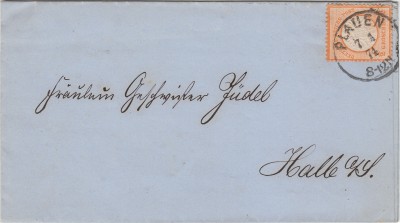 PLAUEN
7 1
74
8-12 V
Fräulein Geschwister Jüdel
Halle a/S.